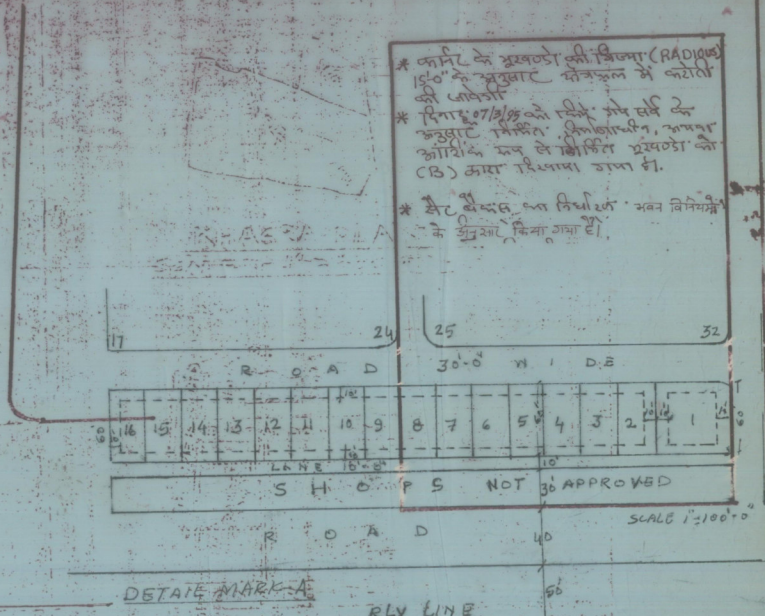 * कार्नर के भूखण्डो की त्रिज्या (RADIOUS)
15'0" के अनुसार क्षेत्रफल में कटौती
की जावेगी
* दिनांक 07/3/95 को किये गये सर्वे के
अनुसार निर्मित, निर्माणाधीन, अथवा
आंशिक रूप से निर्मित भूखण्डो को
(B) द्वारा दिखाया गया है।
* सैट बैकस का निर्धारण भवन विनियमो
के अनुसार किया गया है।
17 24 25 32
ROAD 30'-0" WIDE
10'
60 16 15 14 13 12 11 10 9 8 7 6 5 4 3 2 1 60
LANE 10'-0" 10'
SHOPS NOT 30' APPROVED
SCALE 1"=100'-0"
ROAD 40
DETAIL MARK-A 50'
RLY LINE